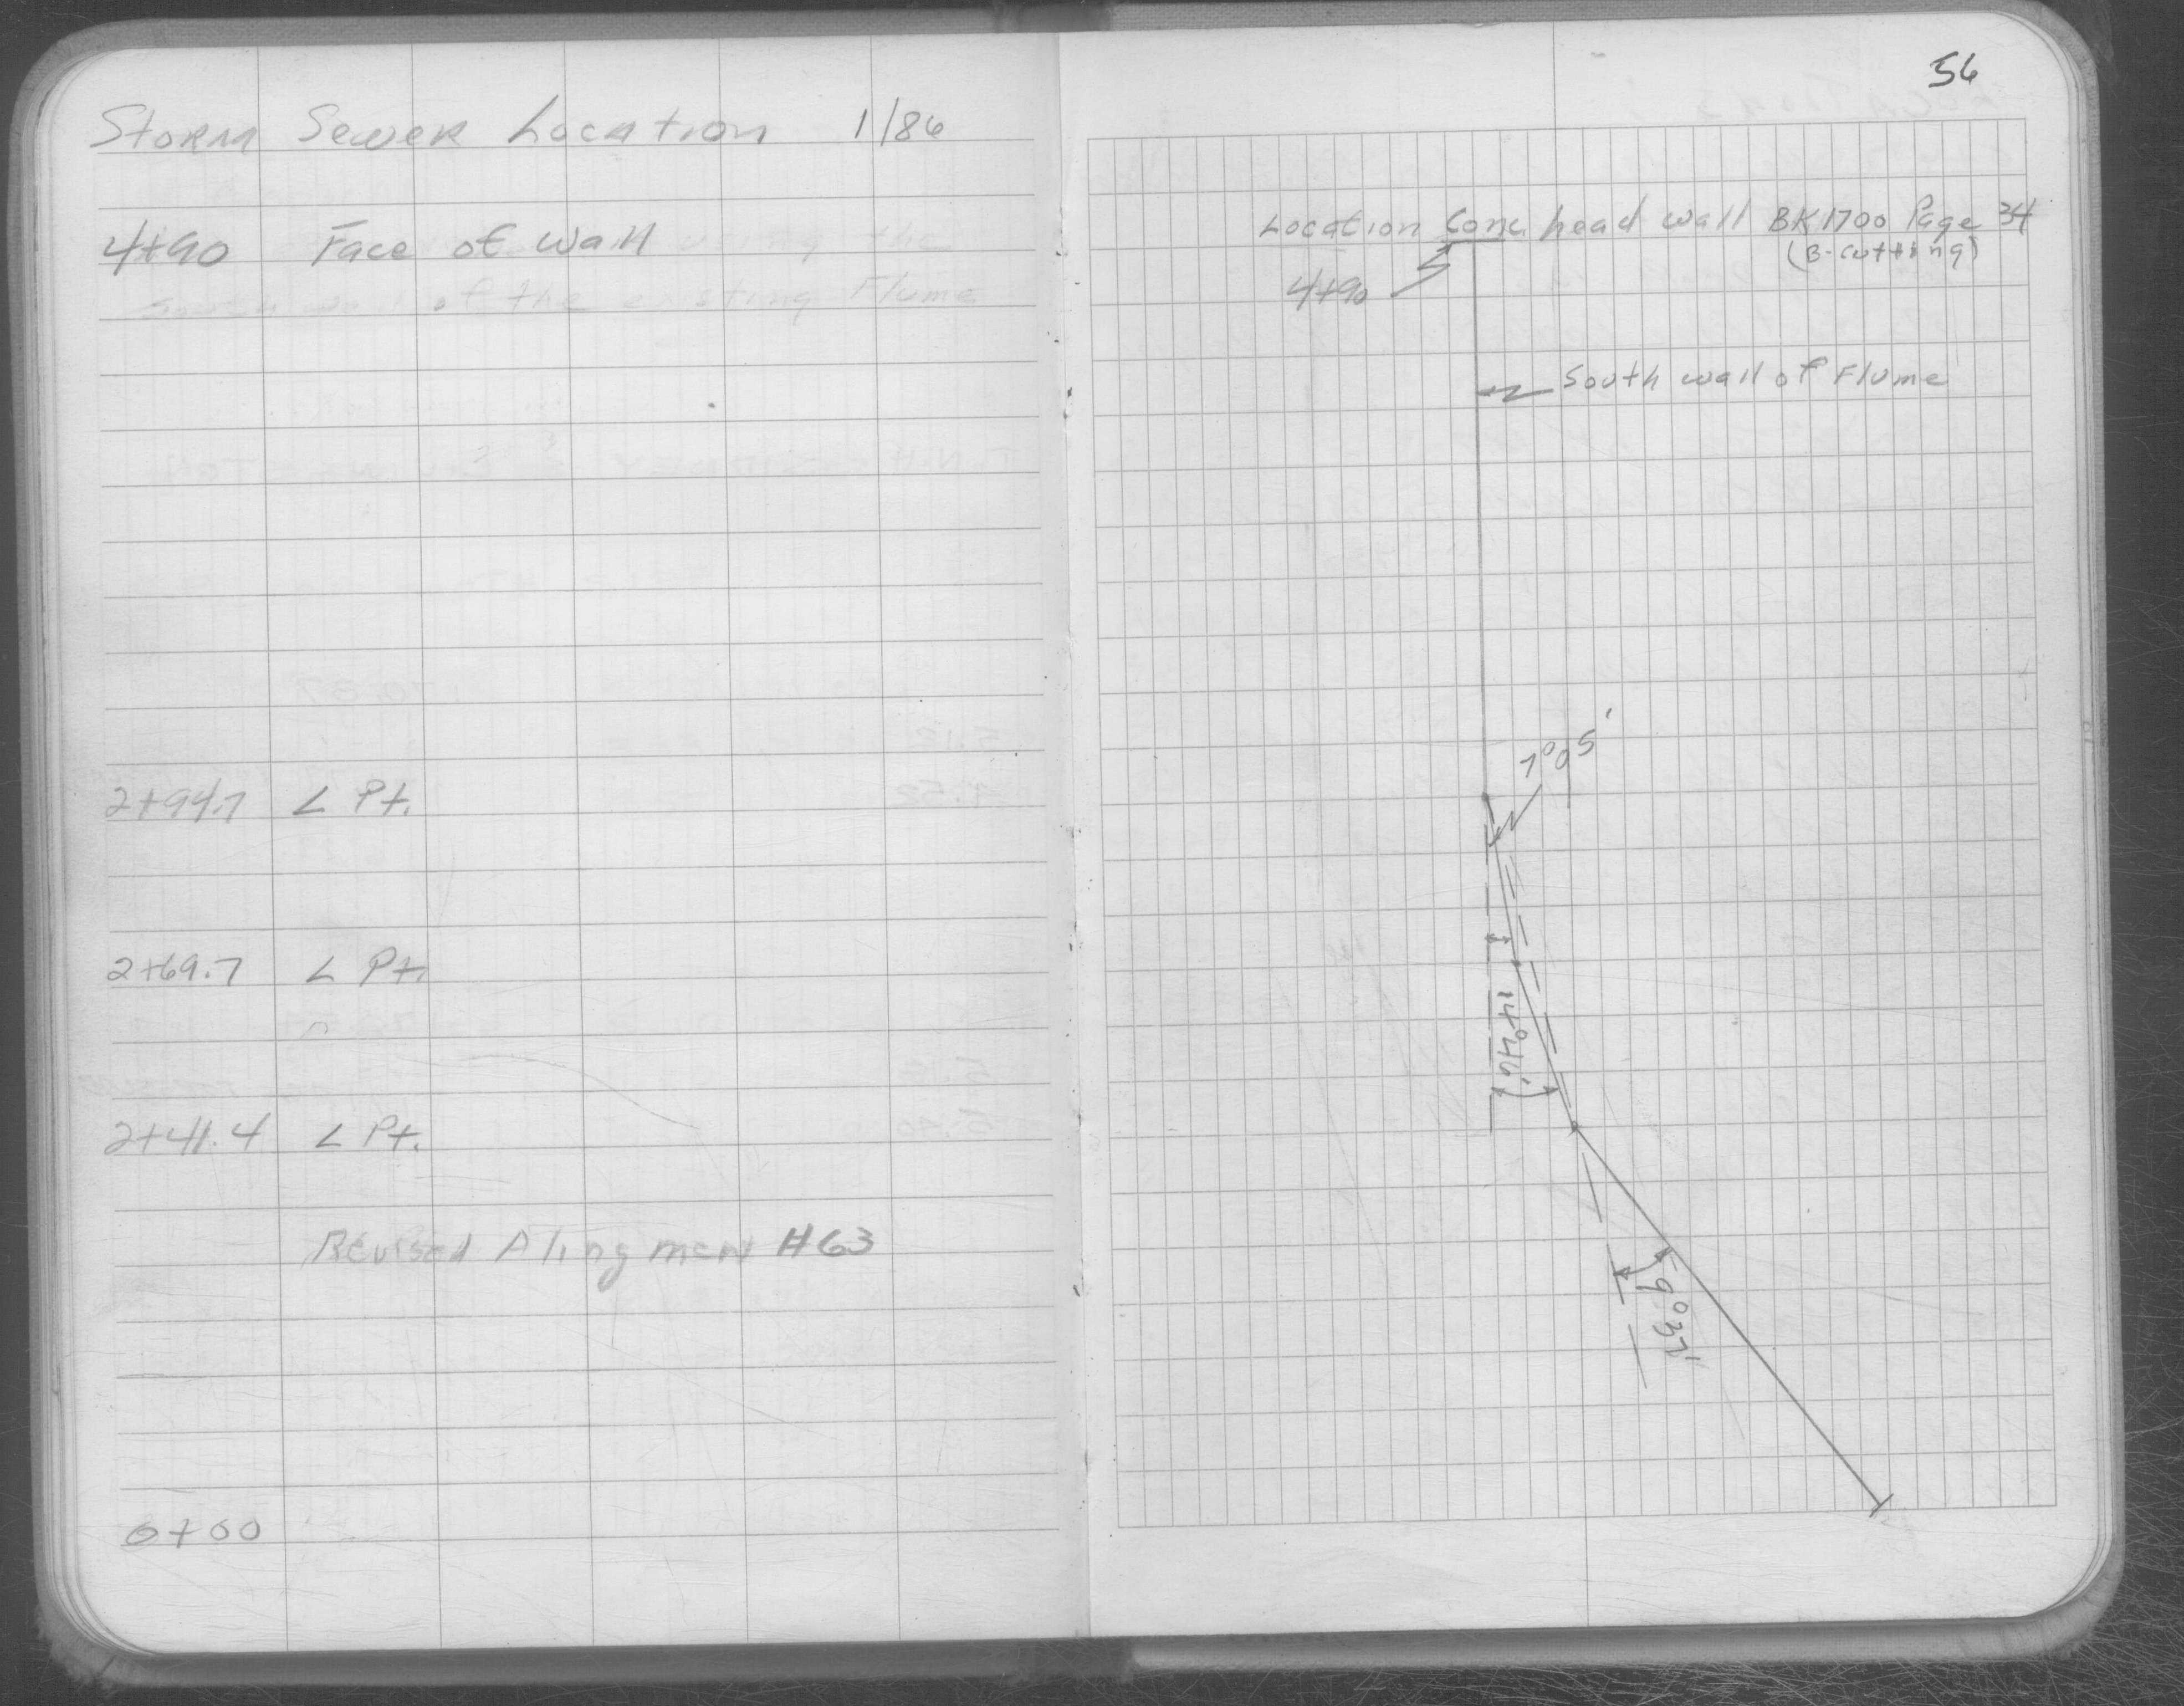 Storm Sewer Location 1/86
4+90 Face of Wall
the
of the existing Flume
2+94.7 ∠ Pt.
2+69.7 ∠ Pt.
2+41.4 ∠ Pt.
Revised Alingment #63
0+00
56
Location Conc. head wall BK1700 Page 34
(B-cutting)
4+90
South wall of Flume
7°05'
14°46'
9°37'